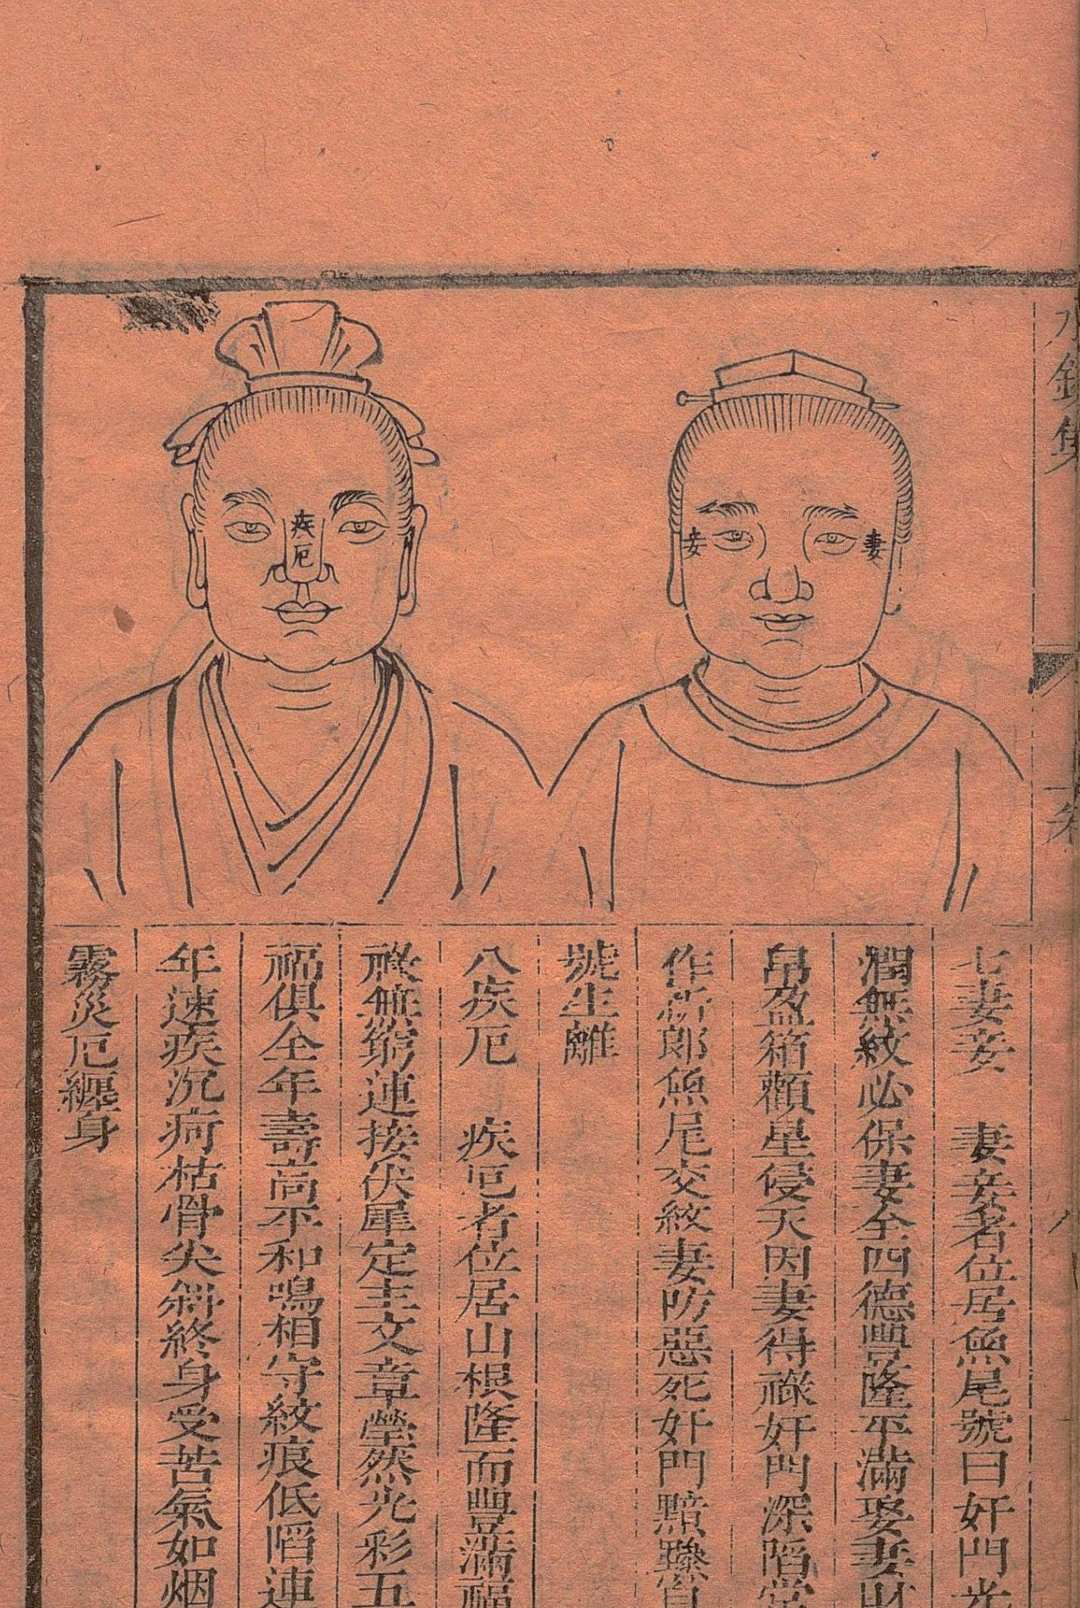 鑑集
疾厄
妾
妻
七妻妾 妻妾者位居魚尾號曰奸門光
潤無紋必保妻全四德豊隆平滿娶妻財
帛盈箱顴星侵天因妻得祿奸門深陷常
作新郎魚尾交紋妻防惡死奸門黯黲自
號生離
八疾厄 疾厄者位居山根隆而豊滿福
祿無窮連接伏犀定主文章瑩然光彩五
福俱全年壽高平和鳴相守紋痕低陷連
年速疾沉疴枯骨尖斜終身受苦氣如烟
霧災厄纏身